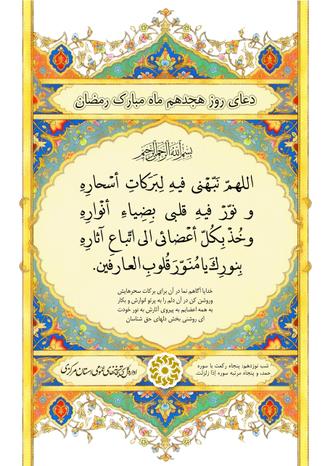 دعای روز هجدهم ماه مبارک رمضان
بسم الله الرحمن الرحیم
اللهمّ نَبّهْني فيهِ لِبَركاتِ أسْحارِهِ
و نوّرْ فيهِ قلبي بِضِياءِ أنْوارِهِ
وخُذْ بِكُلّ أعْضائي الى اتّباعِ آثارِهِ
بِنورِكَ يا مُنَوّرَ قُلوبِ العارفينَ.
خدایا آگاهم نما در آن برای برکات سحرهایش
وروشن کن در آن دلم را به پرتو انوارش و بکار
به همه اعضایم به پیروی آثارش به نور خودت
ای روشنی بخش دلهای حق شناسان
شب نوزدهم: پنجاه رکعت با سوره
حمد، و پنجاه مرتبه سوره إذا زلزلت.
استان مرکزی